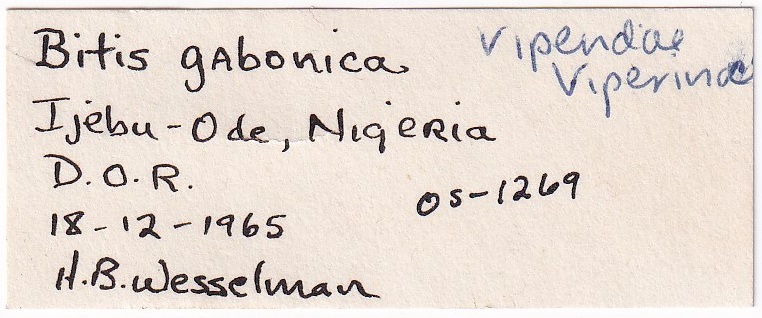 Bitis gabonica
Vipendae
Viperinae
Ijebu-Ode, Nigeria
D.O.R.
OS-1269
18-12-1965
H.B. Wesselman